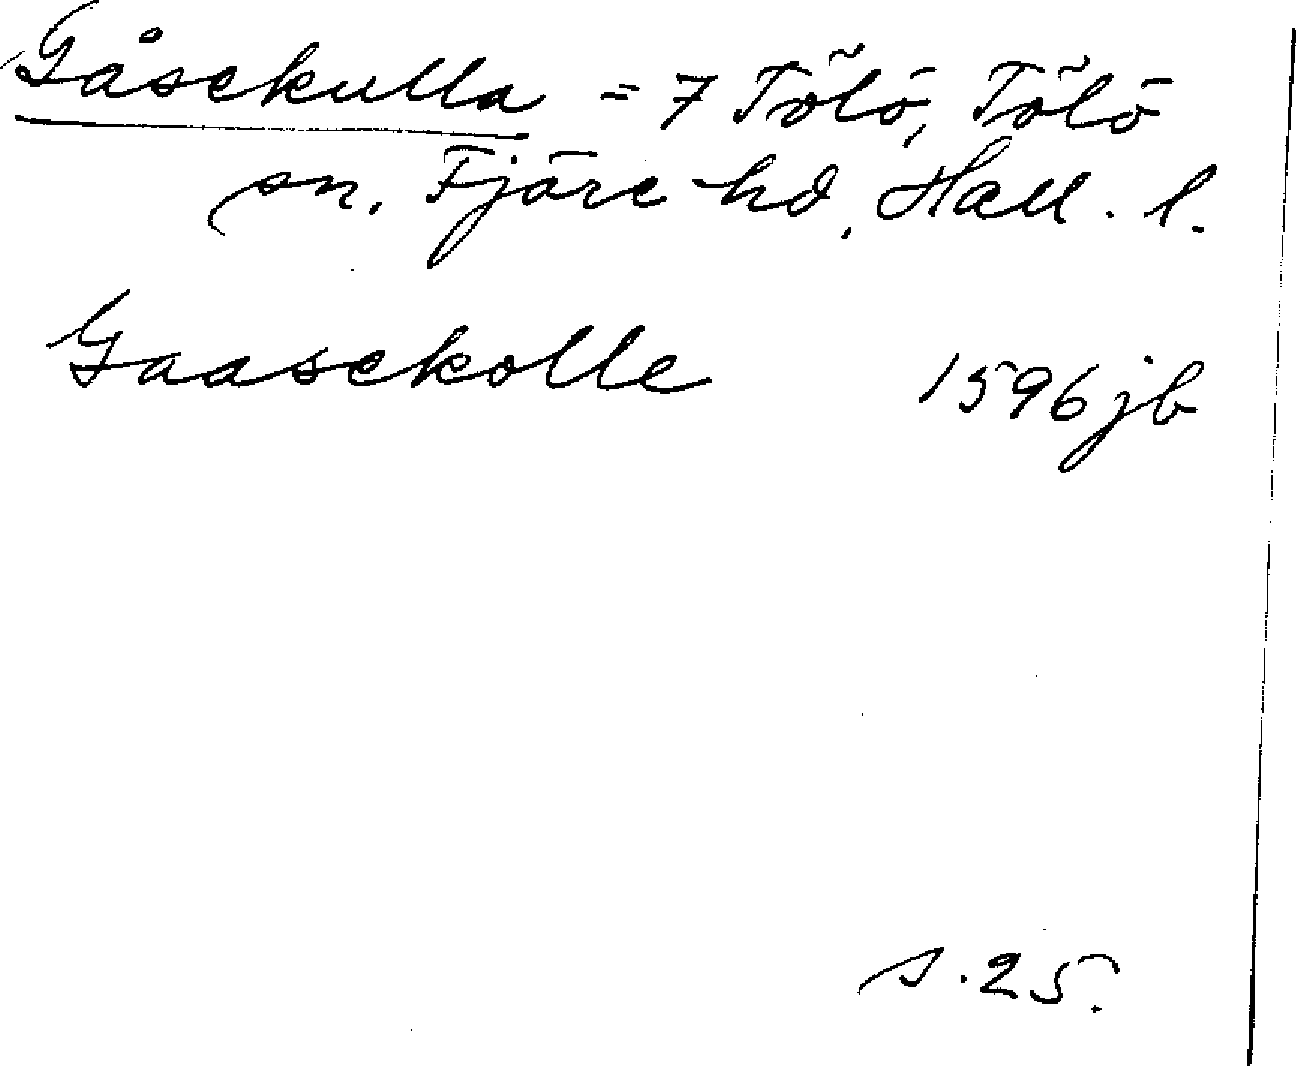 Gåsekulla = 7 Tölö, Tölö
sn. Fjäre hd, Hall. l.
Gaasekolle 1596 jb
s. 25.